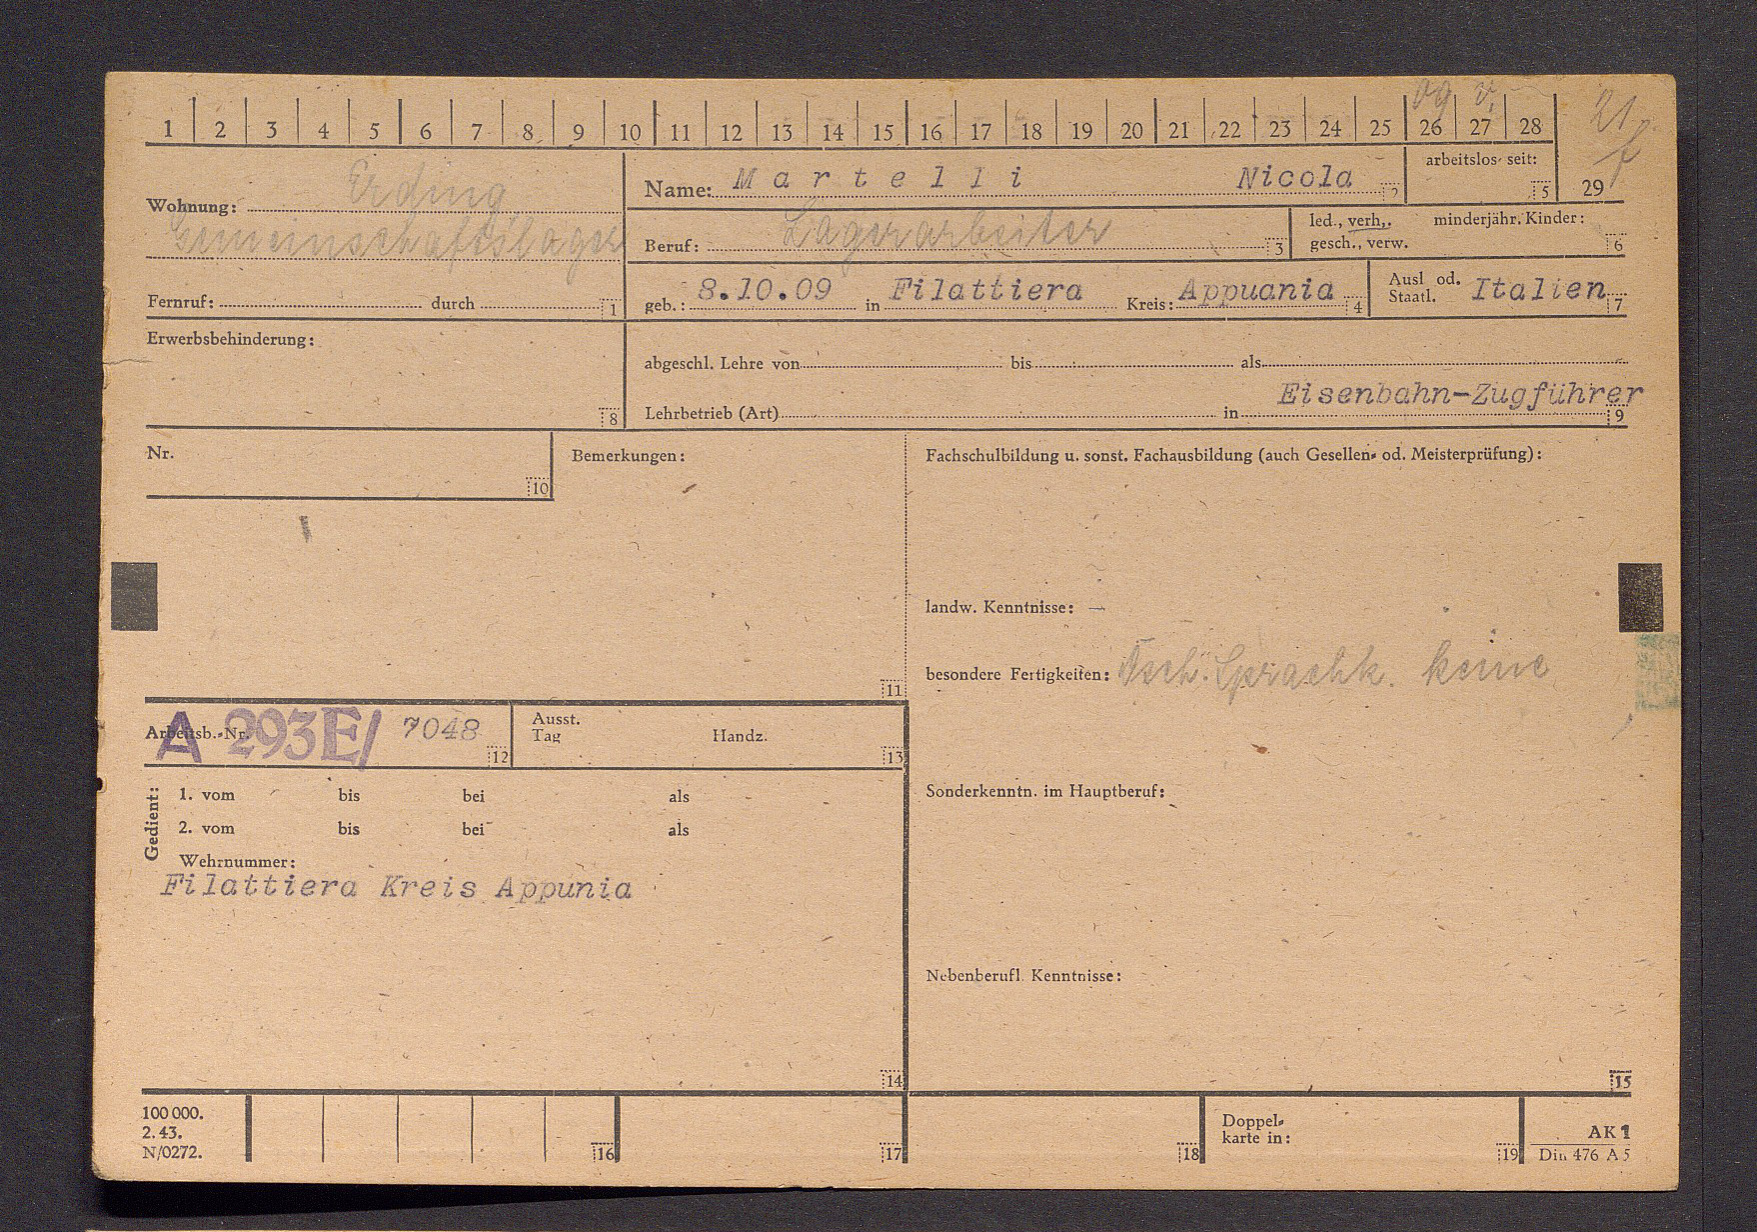 1 2 3 4 5 6 7 8 9 10 11 12 13 14 15 16 17 18 19 20 21 22 23 24 25 26 27 28 29
Wohnung: Erding
Gemeinschaftslager
Fernruf: durch 1
Name: Martelli Nicola 2
arbeitslos seit: 5
Beruf: Lagerarbeiter 3
led., verh., minderjähr. Kinder:
gesch., verw. 6
geb.: 8.10.09 in Filattiera Kreis: Appuania 4
Ausl od.
Staatl. Italien 7
Erwerbsbehinderung:
8
abgeschl. Lehre von bis als
Eisenbahn-Zugführer
Lehrbetrieb (Art) in 9
Nr.
10
Bemerkungen:
11
Fachschulbildung u. sonst. Fachausbildung (auch Gesellen- od. Meisterprüfung):
landw. Kenntnisse: —
besondere Fertigkeiten: Dsch. Sprachk. keine
Arbeitsb.-Nr. A 293E/ 7048 12
Ausst.
Tag Handz. 13
Gedient:
1. vom bis bei als
2. vom bis bei als
Wehrnummer:
Filattiera Kreis Appunia
14
Sonderkenntn. im Hauptberuf:
Nebenberufl. Kenntnisse:
15
100 000.
2. 43.
N/0272.
16
17
18
Doppel-
karte in:
19
AK 1
Din 476 A 5